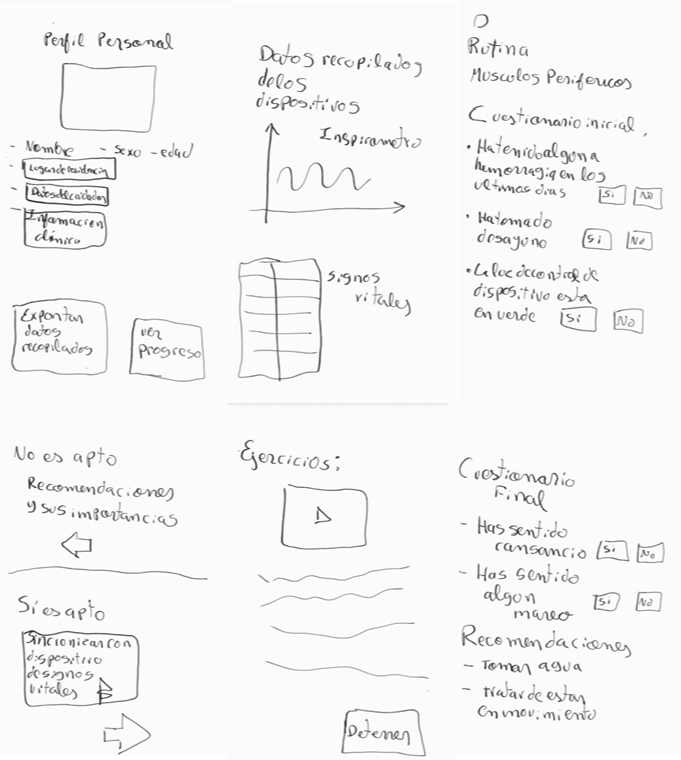 Perfil Personal
- Nombre - Sexo - edad
- Lugar de residencia
- Datos del cuidador
- Informacion
clínica
Exportar
datos
recopilados
ver
progreso
Datos recopilados
delos
dispositivos
Inspirometro
signos
vitales
Rutina
Musculos Perifericos
Cuestionario inicial.
• Ha tenido alguna
hemorragia en los
ultimos dias Si No
• Ha tomado
desayuno Si No
• La luz de control de
dispositivo esta
en verde Si No
No es apto
Recomendaciones
y sus importancias
Si es apto
Sincronizar con
dispositivo
de signos
vitales
Ejercicios:
Detener
Cuestionario
Final
- Has sentido
cansancio Si No
- Has sentido
algun
mareo Si No
Recomendaciones
- Tomar agua
- tratar de estar
en movimiento